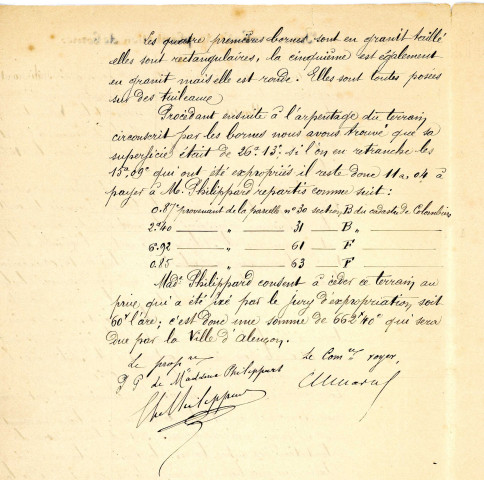 Les quatre premières bornes sont en granit taillé
elles sont rectangulaires, la cinquième est également
en granit mais elle est ronde. Elles sont toutes posées
sur des tuileaux
Procédant ensuite à l'arpentage du terrain
circonscrit par les bornes nous avons trouvé que sa
superficie était de 26a 13c si l'on en retranche les
15a 09c qui ont été expropriés il reste donc 11a,04 à
payer à M. Philippard repartis comme suit:
0.87c provenant de la parcelle n° 30 section B du cadastre de Colombiers
2a 40 — " — 31 — B — "
6a.92 — " — 61 — F —
0.85 — " — 63 — F
Made Philippard consent à céder ce terrain au
prix qui a été fixé par le jury d'expropriation, soit
60f l'are; c'est donc une somme de 662f 40c qui sera
due par la Ville d'Alençon.
Le propre
Le Comre voyer,
P P de Madame Philippard